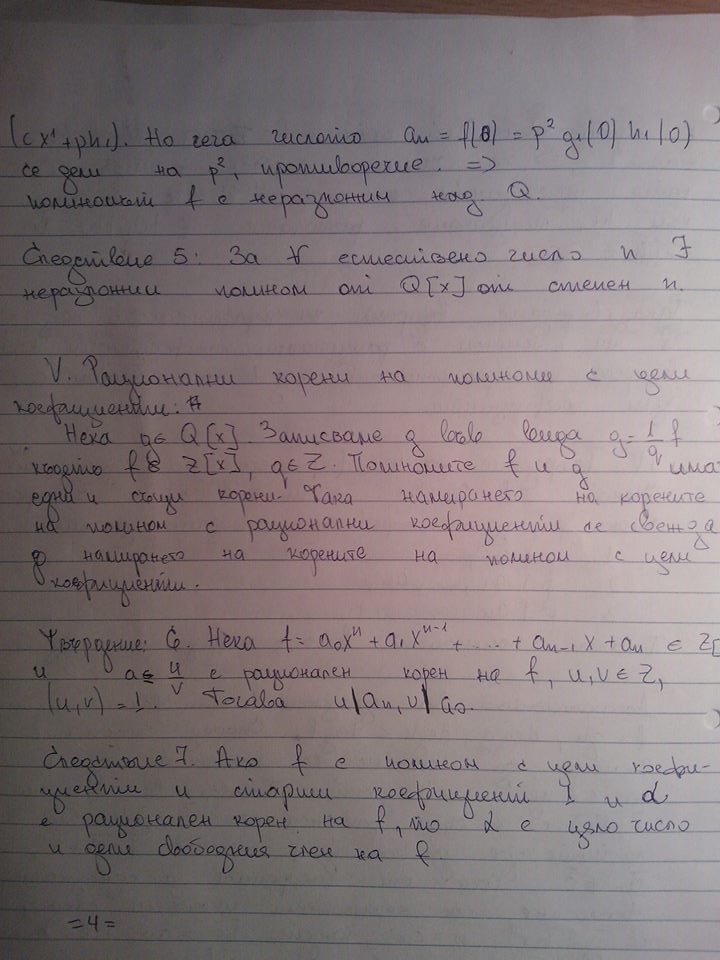 (cx¹+ph₁). Но сега числото aₙ = f(0) = p² g₁(0) h₁(0)
се дели на p², противоречие. =>
полиномът f е неразложим над Q.
Следствие 5: За ∀ естествено число n ∃
неразложим полином от Q[x] от степен n.
V. Рационални корени на полиноми с цели
коефициенти:
Нека g ∈ Q[x]. Записваме g във вида g = 1/q f
където f ∈ Z[x], q ∈ Z. Полиномите f и g имат
едни и същи корени. Така намирането на корените
на полином с рационални коефициенти се свежда
до намирането на корените на полином с цели
коефициенти.
Твърдение: 6. Нека f = a₀xⁿ + a₁xⁿ⁻¹ + ... + aₙ₋₁x + aₙ ∈ Z[
и a = u/v е рационален корен на f, u, v ∈ Z,
(u,v) = 1. Тогава u|aₙ, v|a₀.
Следствие 7. Ако f е полином с цели коефи-
циенти и старши коефициент 1 и α
е рационален корен на f, то α е цяло число
и дели свободния член на f.
=4=